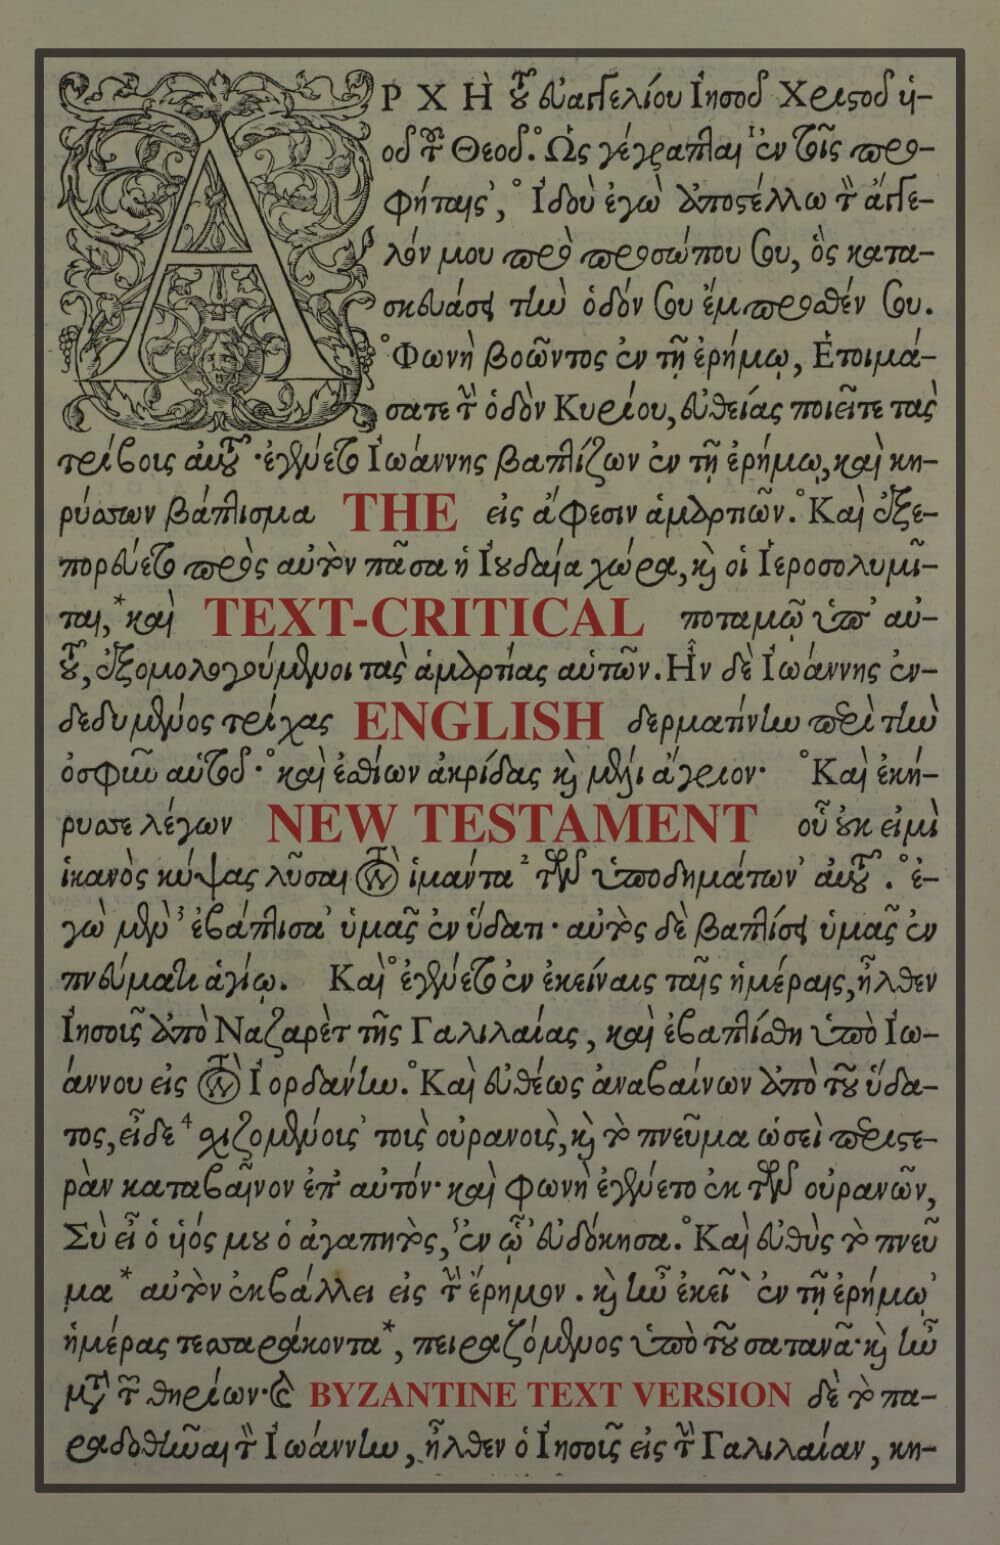 ΑΡΧῊ τοῦ εὐαγγελίου Ἰησοῦ Χριστοῦ υἱ-
οῦ τοῦ Θεοῦ. °Ὡς γέγραπται ¹ἐν τοῖς προ-
φήταις', °Ἰδοὺ ἐγὼ ἀποστέλλω τὸν ἄγγε-
λόν μου πρὸ προσώπου σου, ὃς κατα-
σκευάσει τὴν ὁδόν σου ἔμπροσθέν σου.
°Φωνὴ βοῶντος ἐν τῇ ἐρήμῳ, Ἑτοιμά-
σατε τὴν ὁδὸν Κυρίου, εὐθείας ποιεῖτε τὰς
τρίβους αὐτοῦ· ἐγένετο Ἰωάννης βαπτίζων ἐν τῇ ἐρήμῳ, καὶ κη-
ρύσσων βάπτισμα THE εἰς ἄφεσιν ἁμαρτιῶν. °Καὶ ἐξε-
πορεύετο πρὸς αὐτὸν πᾶσα ἡ Ἰουδαία χώρα, καὶ οἱ Ἱεροσολυμῖ-
ται,* καὶ TEXT-CRITICAL ποταμῷ ὑπ' αὐ-
τοῦ, ἐξομολογούμενοι τὰς ἁμαρτίας αὑτῶν. Ἦν δὲ Ἰωάννης ἐν-
δεδυμένος τρίχας ENGLISH δερματίνην περὶ τὴν
ὀσφὺν αὑτοῦ· °καὶ ἐσθίων ἀκρίδας καὶ μέλι ἄγριον· °Καὶ ἐκή-
ρυσσε λέγων NEW TESTAMENT οὗ οὐκ εἰμὶ
ἱκανὸς κύψας λῦσαι τὸν ἱμάντα ²τῶν ὑποδημάτων' αὐτοῦ. °ἐ-
γὼ μὲν ³ἐβάπτισα' ὑμᾶς ἐν ὕδατι· αὐτὸς δὲ βαπτίσει ὑμᾶς ἐν
πνεύματι ἁγίῳ. Καὶ °ἐγένετο ἐν ἐκείναις ταῖς ἡμέραις, ἦλθεν
Ἰησοῦς ἀπὸ Ναζαρὲτ τῆς Γαλιλαίας, καὶ ἐβαπτίσθη ὑπὸ Ἰω-
άννου εἰς τὸν Ἰορδάνην. °Καὶ εὐθέως ἀναβαίνων ἀπὸ τοῦ ὕδα-
τος, εἶδε ⁴σχιζομένους' τοὺς οὐρανοὺς, καὶ τὸ πνεῦμα ὡσεὶ περιστε-
ρὰν καταβαῖνον ἐπ' αὐτόν· καὶ φωνὴ ἐγένετο ἐκ τῶν οὐρανῶν,
Σὺ εἶ ὁ υἱός μου ὁ ἀγαπητὸς, ⁵ἐν ᾧ' εὐδόκησα. °Καὶ εὐθὺς τὸ πνεῦ
μα* αὐτὸν ἐκβάλλει εἰς τὴν ἔρημον. καὶ ἦν ἐκεῖ `ἐν τῇ ἐρήμῳ'
ἡμέρας τεσσαράκοντα*, πειραζόμενος ὑπὸ τοῦ σατανᾶ· καὶ ἦν
μετὰ τῶν θηρίων· BYZANTINE TEXT VERSION δὲ τὸ πα-
ραδοθῆναι τὸν Ἰωάννην, ἦλθεν ὁ Ἰησοῦς εἰς τὴν Γαλιλαίαν, κη-